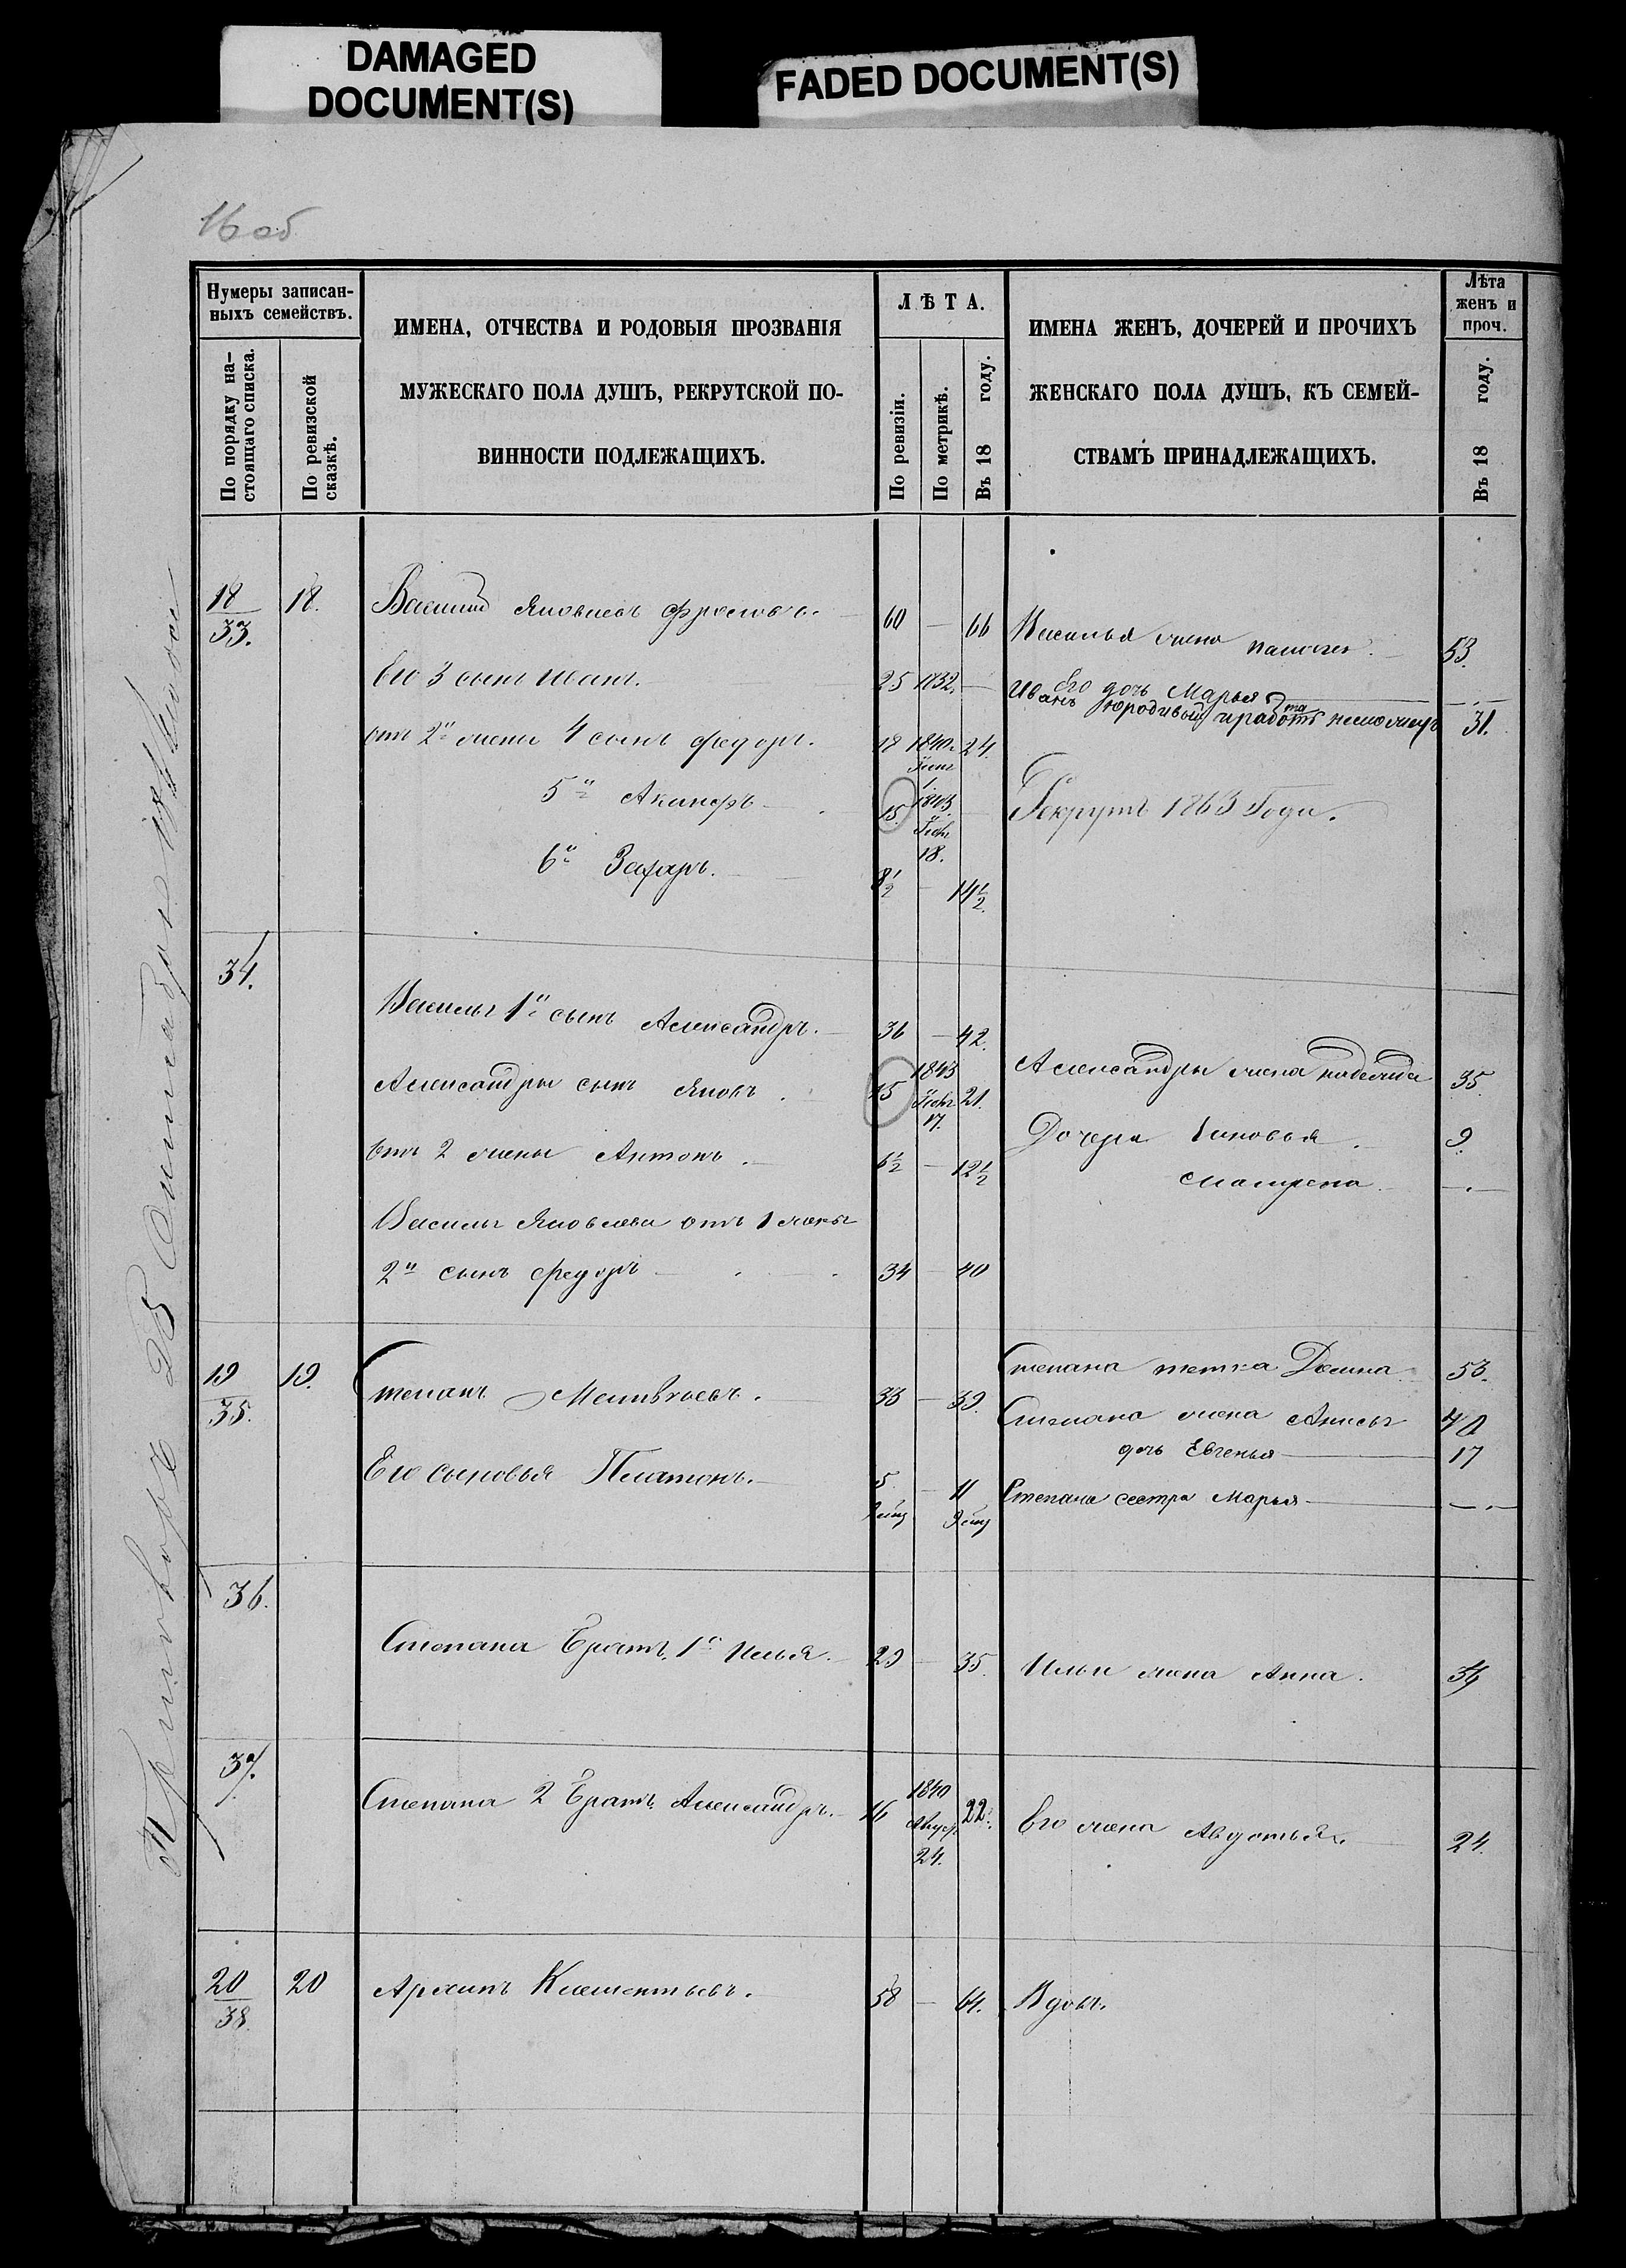 DAMAGED
DOCUMENT(S)
FADED DOCUMENT(S)
16 об
Нумеры записан-
ныхъ семействъ.
По порядку на-
стоящаго списка.
По ревизской
сказкѣ.
ИМЕНА, ОТЧЕСТВА И РОДОВЫЯ ПРОЗВАНІЯ
МУЖЕСКАГО ПОЛА ДУШЪ, РЕКРУТСКОЙ ПО-
ВИННОСТИ ПОДЛЕЖАЩИХЪ.
ЛѢТА.
По ревизіи.
По метрикѣ.
Въ 18 году.
ИМЕНА ЖЕНЪ, ДОЧЕРЕЙ И ПРОЧИХЪ
ЖЕНСКАГО ПОЛА ДУШЪ, КЪ СЕМЕЙ-
СТВАМЪ ПРИНАДЛЕЖАЩИХЪ.
Лѣта
женъ и
проч.
Въ 18 году.
18
33.
18.
Василій Яковлевъ Фроловъ. 60 — 66
Василья жена 53.
Его 3 сынъ Иванъ. 25 1832. —
Его дочь Марья — . —
Иванъ юродивый 31.
отъ 2й жены 4 сынъ Федоръ. 18 1840. 24.
5й Акинфъ 15. 1843. 18.
Рекрутъ 1863 Года.
6й Захаръ. 8½ — 14½.
34.
Василья 1й сынъ Александръ. 36 — 42.
Александры сынъ Яковъ. 15 1843 17. 21.
Александры жена Надежда 35.
отъ 2 жены Антонъ. 6½ — 12½
Дочери 9.
Матрена — . —
Василья Яковлева отъ 1 жены
2й сынъ Федоръ 34 — 40
19
35.
19.
Степанъ Матвѣевъ. 33 — 39.
Степана тетка Домна 53.
Степана жена 40
дочь Евгенья 17
Его сыновья Платонъ. 5 — 11
Степана сестра Марья — . —
36.
Степана братъ 1й Илья. 29 — 35.
Ильи жена Анна. 34
37.
Степана 2 братъ Александръ. 16 1840 24. 22.
Его жена Авдотья. 24.
20
38.
20
Архипъ Клементьевъ. 58 — 64.
Вдовъ.